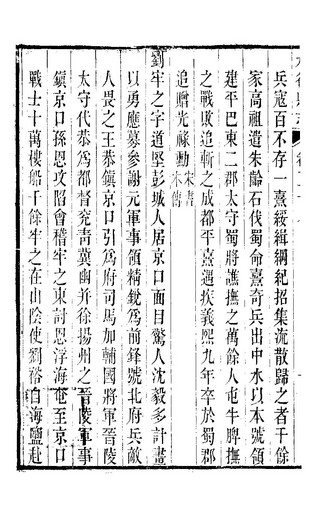 兵寇百不存一熹綏緝綱紀招集流散歸之者千餘
家高祖遣朱齡石伐蜀命熹奇兵出中水以本號領
建平巴東二郡太守蜀將譙撫之萬餘人屯牛脾撫
之戰敗追斬之成都平熹遇疾義熙九年卒於蜀郡
追贈光祿勳宋書朱傳
劉牢之字道堅彭城人居京口面目驚人沈毅多計畫
以勇應募參謝元軍事領精銳爲前鋒號北府兵敵
人畏之王恭鎮京口引爲府司馬加輔國將軍晉陵
太守代恭爲都督兗青冀幽并徐揚州之晉陵軍事
鎮京口孫恩攻陷會稽牢之東討恩浮海奄至京口
戰士十萬樓船千餘牢之在山陰使劉裕自海鹽赴